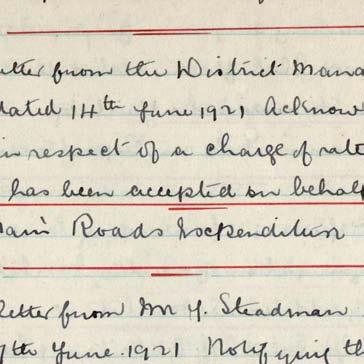 etter from the District Mana
dated 14th June 1921 Acknow
in respect of a charge of rate
has been accepted on behalf
ain Roads Expenditure
Letter from Mr J. Steadman
7th June. 1921 Notifying th